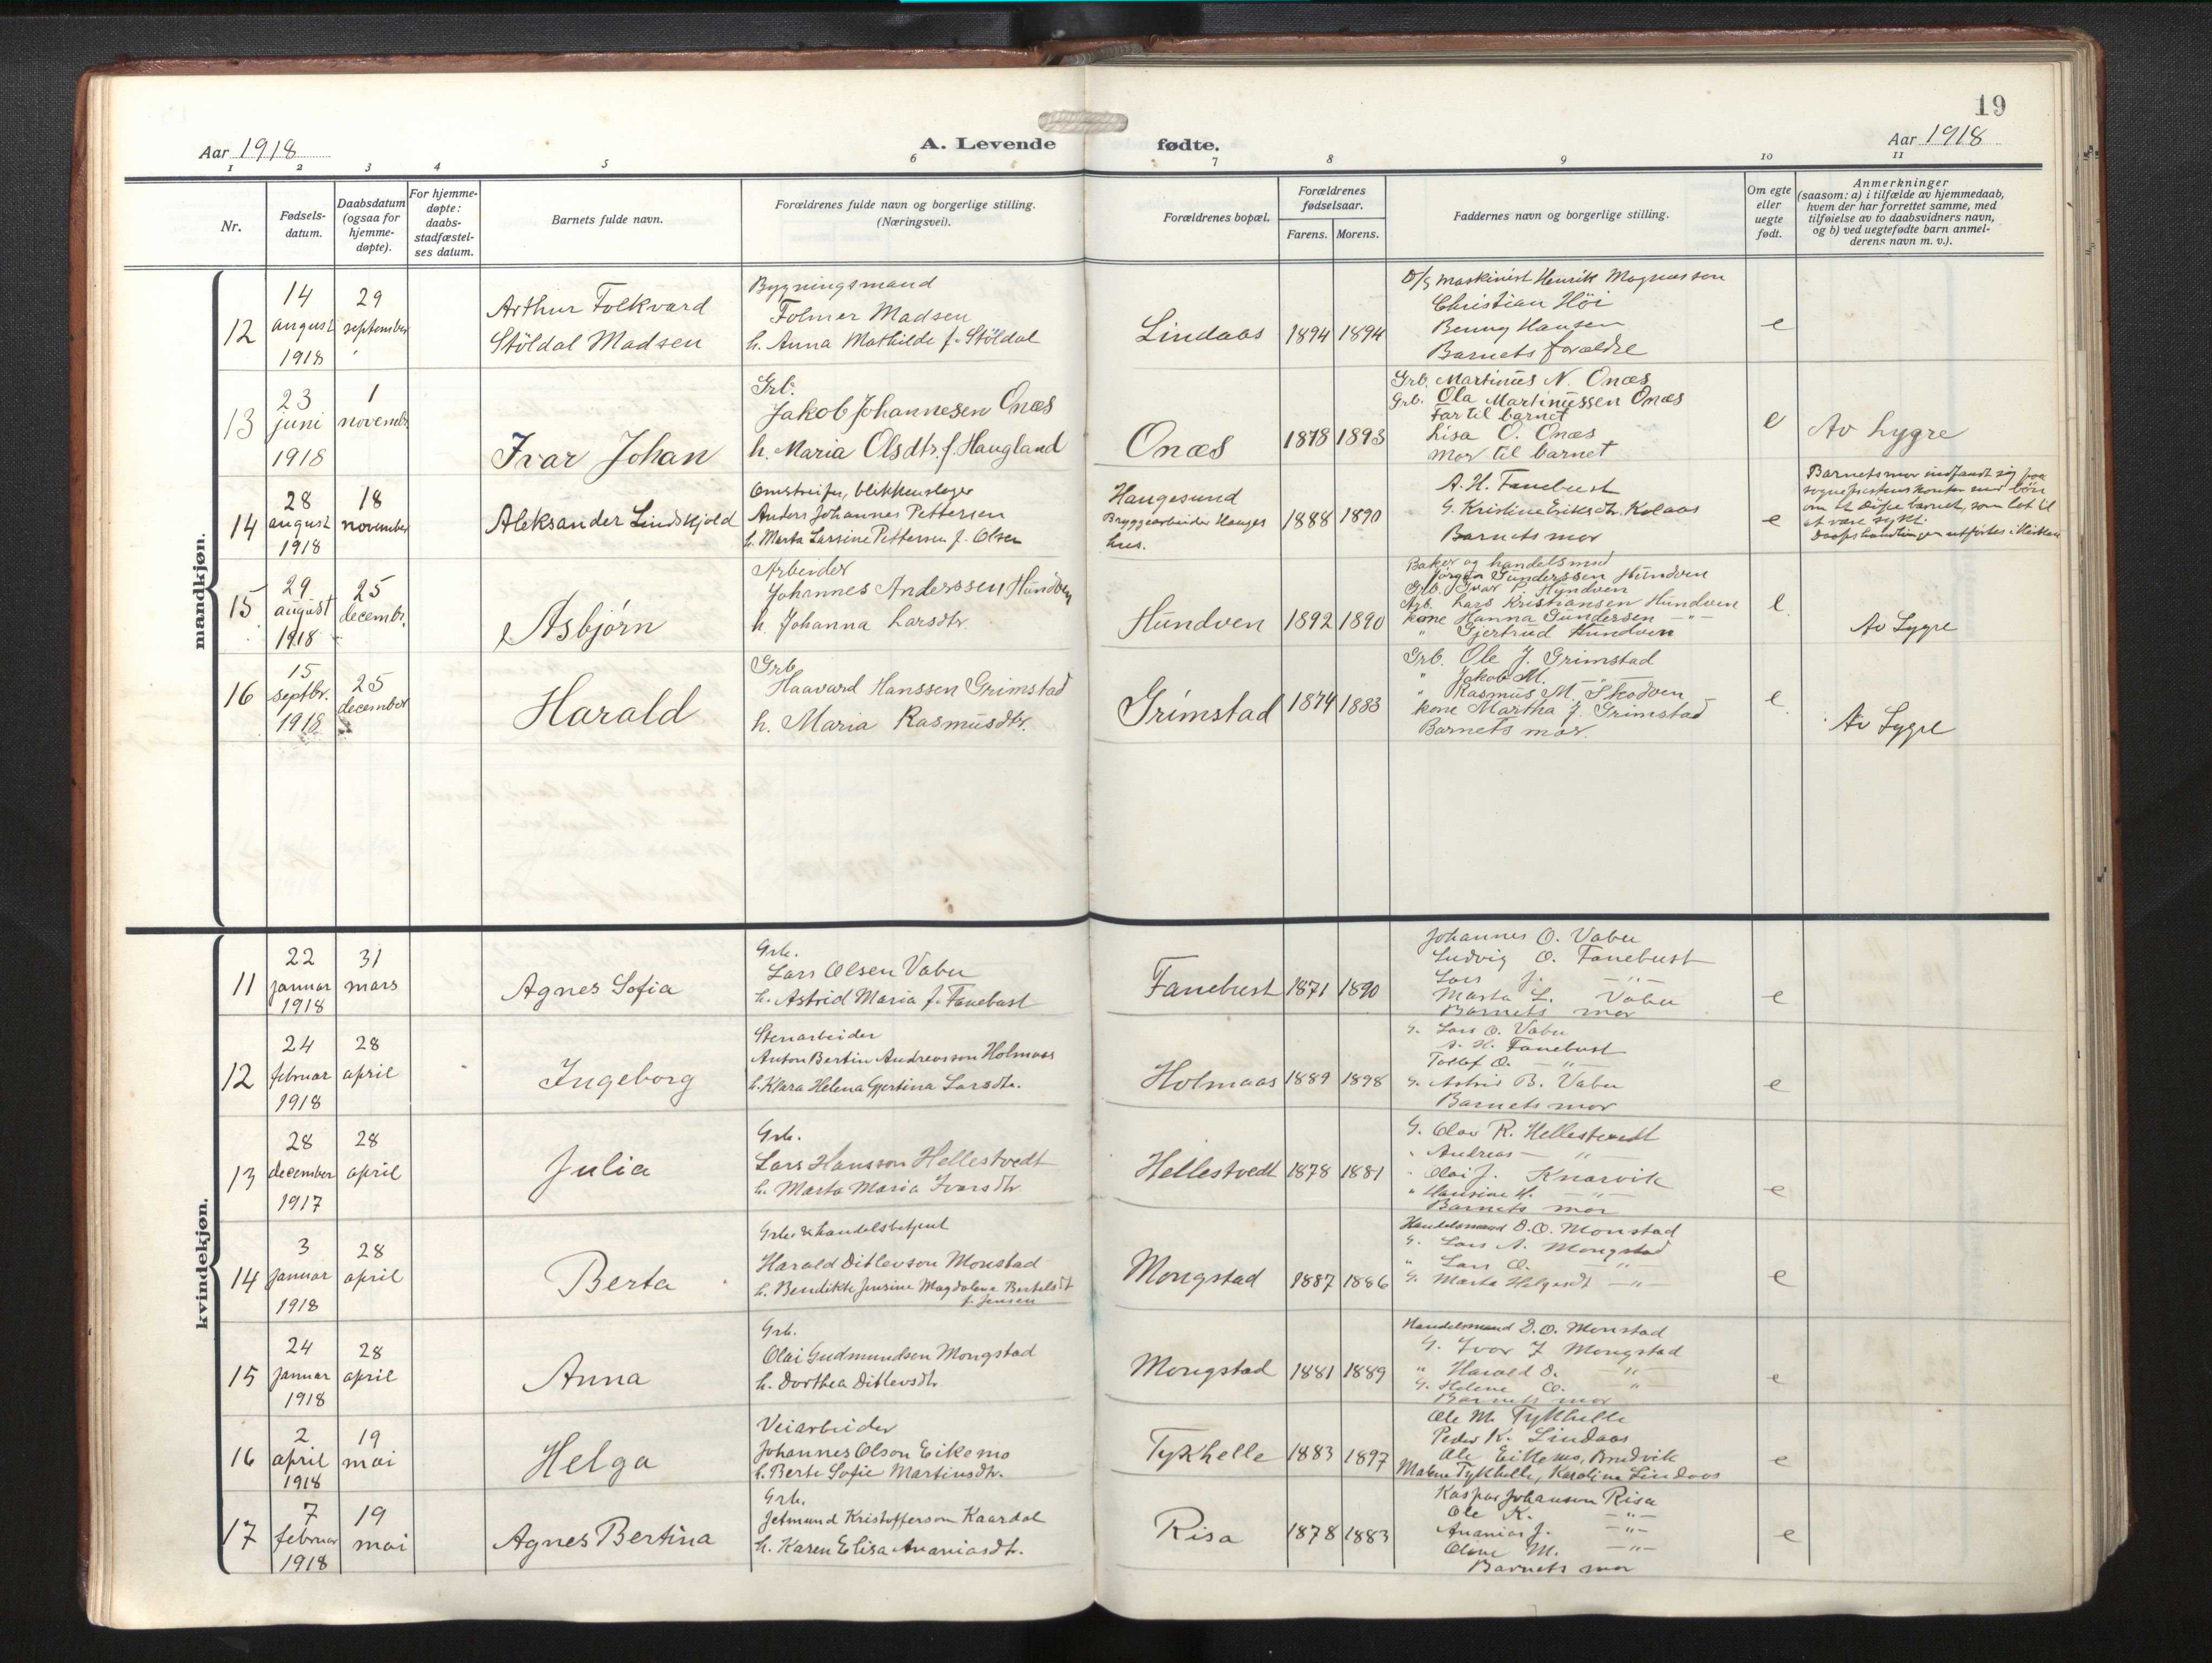 19
Aar 1918
A. Levende fødte.
Aar 1918
1 2 3 4 5 6 7 8 9 10 11
Nr.
Fødsels-
datum.
Daabsdatum
(ogsaa for
hjemme-
døpte).
For hjemme-
døpte:
daabs-
stadfæstel-
ses datum.
Barnets fulde navn.
Forældrenes fulde navn og borgerlige stilling.
(Næringsvei).
Forældrenes bopæl.
Forældrenes
fødselsaar.
Farens. Morens.
Faddernes navn og borgerlige stilling.
Om egte
eller
uegte
født.
Anmerkninger
(saasom: a) i tilfælde av hjemmedaab,
hvem der har forrettet samme, med
tilføielse av to daabsvidners navn,
og b) ved uegtefødte barn anmel-
derens navn m. v.).
mandkjøn.
12
14
august
1918
29
september
Arthur Folkvard
Stöldal Madsen
Bygningsmand
Folmer Madsen
h. Anna Mathilde f. Stöldal
Lindaas
1894 1894
D/S maskinist Henrik Magnussen
Christian Höi
Benny Hansen
Barnets forældre
e
13
23
juni
1918
1
novembr.
Ivar Johan
Grb.
Jakob Johannesen Onæs
h. Maria Olsdtr. f. Haugland
Onæs
1878 1893
Grb. Martinus N. Onæs
Grb. Ola Martinussen Onæs
Far til barnet
Lisa O. Onæs
Mor til barnet
e
Av Lygre
14
28
august
1918
18
november
Aleksander Lindskjold
Omstreifer, blikkenslager
Anders Johannes Pettersen
h. Marta Larsine Pettersen f. Olsen
Haugesund
Bryggearbeider Hauges
hus.
1888 1890
A. H. Fanebust
G. Kristine Eriksdtr. Kolaas
Barnets mor
e
Barnets mor indfandt sig paa
sogneprestens kontor med bön
om at döpe barnet, som lot til
at være sykt.
Daapshandlingen utførtes i kirken
15
29
august
1918
25
decembr.
Asbjørn
Arbeider
Johannes Anderssen Hundven
h. Johanna Larsdtr.
Hundven
1892 1890
Baker og handelsmand
Jörgen Gunderssen Hundven
Grb. Ivar P. Hundven
Arb. Lars Kristiansen Hundven
kone Hanna Gundersen —"—
" Gjertrud Hundven
e.
Av Lygre
16
15
septbr.
1918
25
december
Harald
Grb.
Haavard Hanssen Grimstad
h. Maria Rasmusdtr.
Grimstad
1874 1883
Grb. Ole J. Grimstad
" Jakob M. —"—
" Rasmus M. Skodven
kone Martha J. Grimstad
Barnets mor.
e.
Av Lygre
kvindekjøn.
11
22
januar
1918
31
mars
Agnes Sofia
Grb.
Lars Olsen Vabu
h. Astrid Maria f. Fanebust
Fanebust
1871 1890
Johannes O. Vabu
Ludvig O. Fanebust
Lars J. —"—
Marta L. Vabu
Barnets mor
e
12
24
februar
1918
28
april
Ingeborg
Stenarbeider
Anton Bertin Andreasson Holmaas
h. Klara Helena Gjertina Larsdtr.
Holmaas
1889 1898
G. Lars O. Vabu
A. H. Fanebust
O. —"—
G. Astrid B. Vabu
Barnets mor
e
13
28
december
1917
28
april
Julia
Grb.
Lars Hansson Hellestvedt
h. Marta Maria Ivarsdtr.
Hellestvedt
1878 1881
G. Olav R. Hellestvedt
" Andreas — " —
" Olai J. Knarvik
" Hansine H. —"—
Barnets mor
e
14
3
januar
1918
28
april
Berta
Grb. & handelsbetjent
Harald Ditlevson Monstad
h. Bendikte Jensine Magdalena Bertelsdt
f. Jensen
Mongstad
1887 1886
Handelsmand D. O. Monstad
G. Lars A. Mongstad
" Lars O. —"—
G. Marta Helgesdt —"—
e
15
24
januar
1918
28
april
Anna
Grb.
Olai Gudmundsen Mongstad
h. Dorthea Ditlevsdtr.
Mongstad
1881 1889
Handelsmand D. O. Monstad
G. Ivar J Mongstad
" Harald D. "
G. Helene O. "
Barnets mor
e
16
2
april
1918
19
mai
Helga
Veiarbeider
Johannes Olson Eikemo
h. Berte Sofie Martinsdtr.
Tykhelle
1883 1897
Ole M. Tykhelle
Peder K. Lindaas
Ole Eikemo, Bredvik
Malene Tykhelle, Karoline Lindaas
e
17
7
februar
1918
19
mai
Agnes Bertina
Grb.
Jetmund Kristofferson Kaardal
h. Karen Elisa Ananiasdtr.
Risa
1878 1883
Kaspar Johanson Risa
Ole K. —"—
Ananias J. —"—
Oline M. —"—
Barnets mor
e